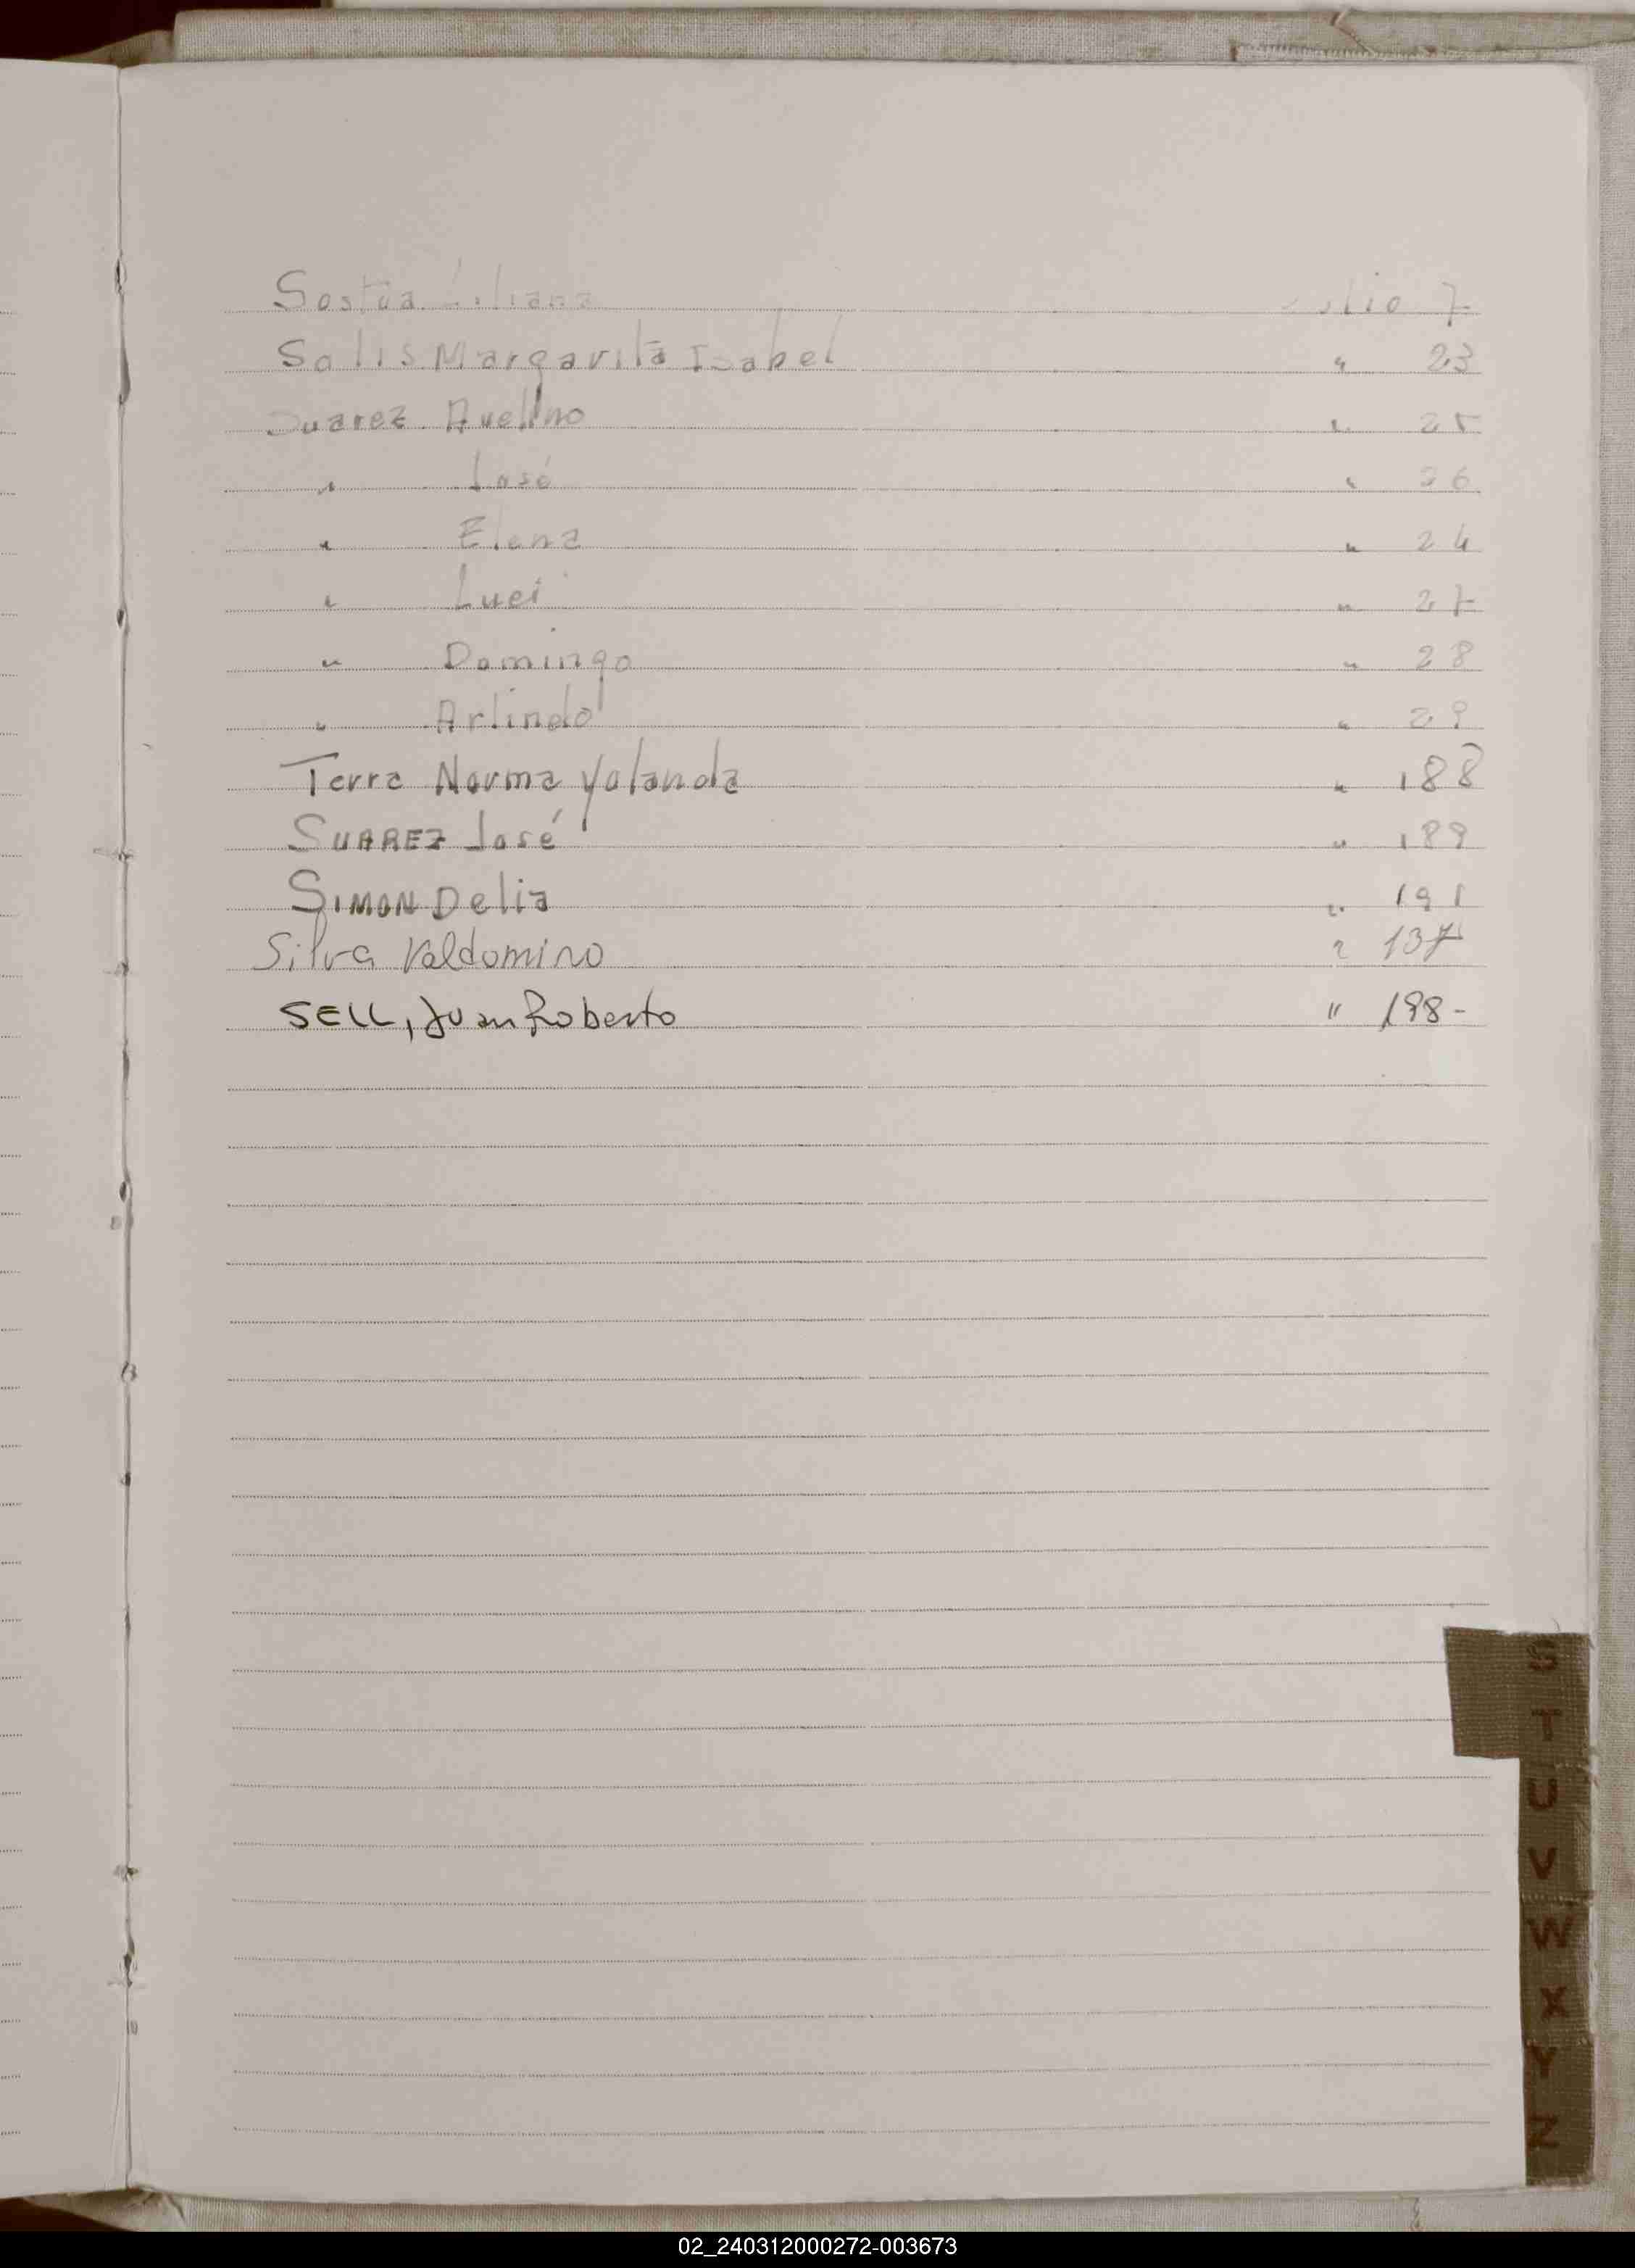 Sostoa Liliana folio 7
Solis Margarita Isabel " 23
Suarez Avelino " 25
" José " 26
" Elena " 24
" Luci " 27
" Domingo " 28
" Arlindo " 29
Terra Norma Yolanda " 188
SUAREZ José " 189
SIMON Delia " 191
Silva Valdomino " 137
SELL, Juan Roberto " 198-
S
T
U
V
W
X
Y
Z
02_240312000272-003673